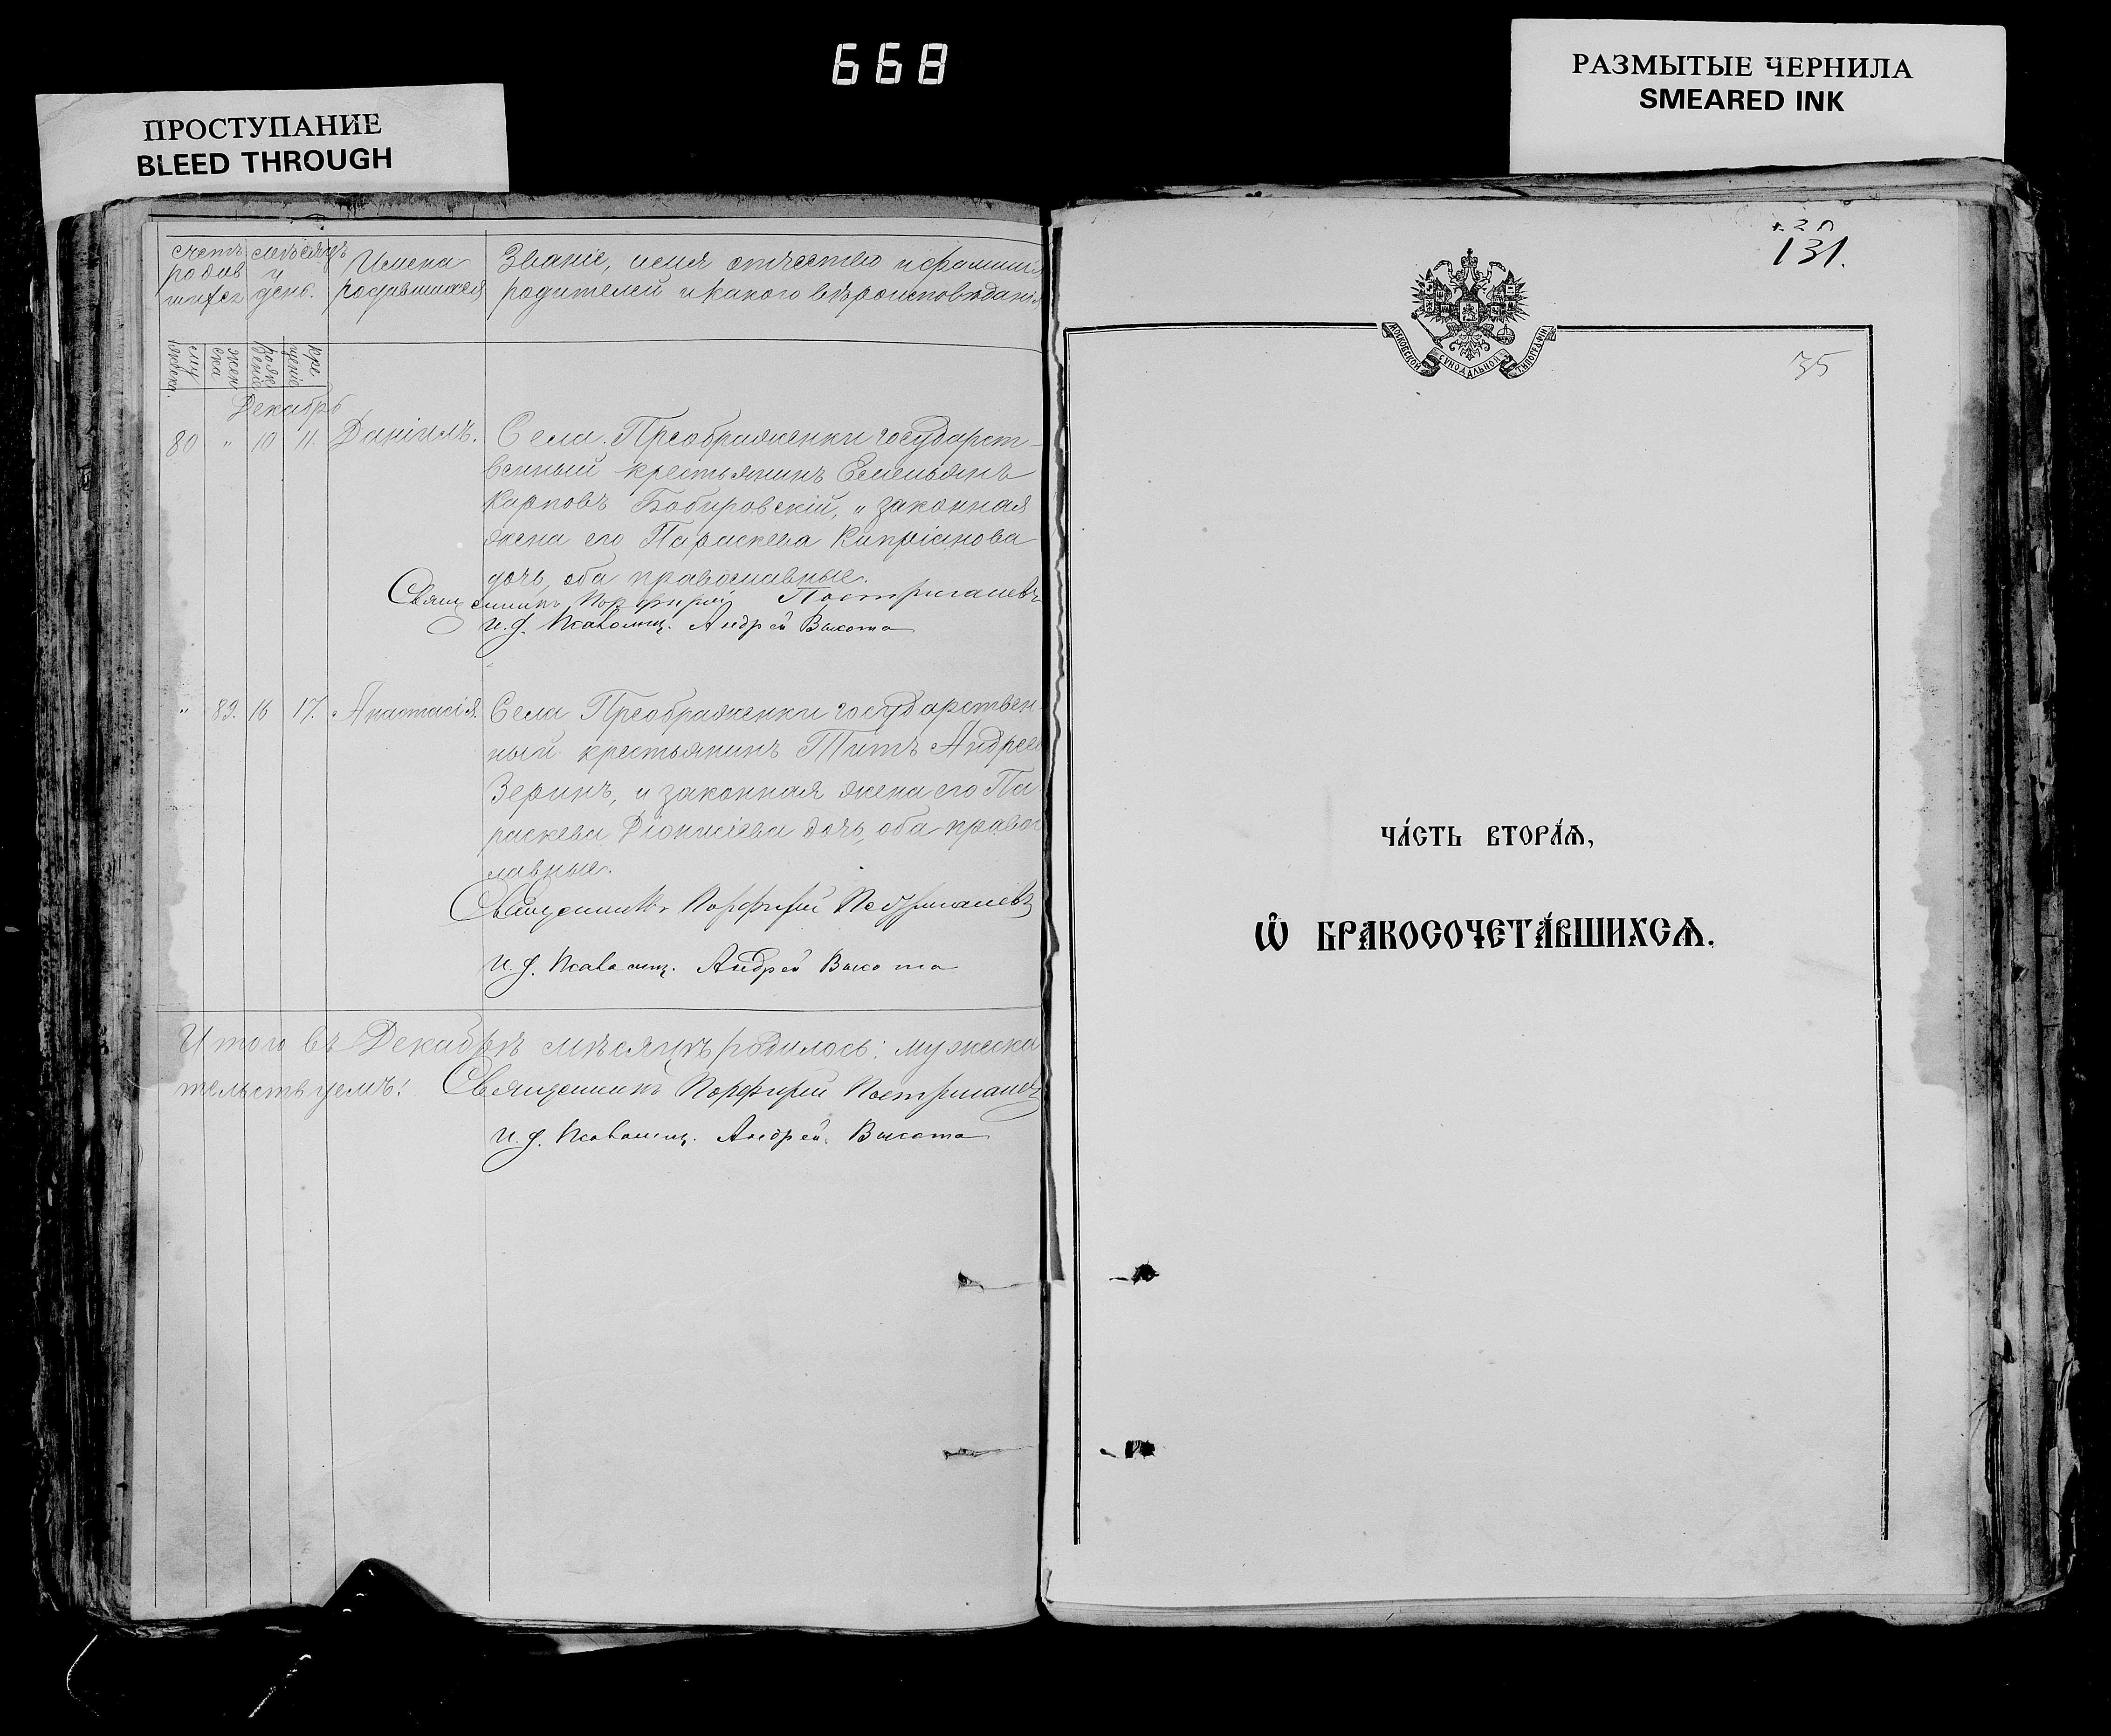 668
ПРОСТУПАНИЕ
BLEED THROUGH
РАЗМЫТЫЕ ЧЕРНИЛА
SMEARED INK
счетъ родив шихся
мѣсяцъ и день.
Имена родившихся
Званіе, имя отчество и фамилія
родителей и какого вѣроисповѣданія
муж ска
жен ска
рож деніе
кре щеніе
Декабрь
80 " 10 11. Даніилъ. Села Преображенки государст-
венный крестьянинъ Емельянъ
Карповъ Бобировскій, и законная
жена его Параскева Кипріанова
дочь, оба православные.
Священникъ Порфирій Постригачевъ
И. д. Псаломщ. Андрей Высота
" 89. 16 17. Анастасія. Села Преображенки государствен
ный крестьянинъ Титъ Андреев
Зеринъ, и законная жена его Па
раскева Діонисіева дочь, оба правос
лавные.
Священникъ Порфирій Постригачевъ
И. д. Псаломщ. Андрей Высота
Итого въ Декабрѣ мѣсяцѣ родилось: мужеска
тельствуемъ: Священникъ Порфирій Постригачевъ
И. д. Псаломщ. Андрей Высота
131.
МОСКОВСКОЙ СѴНОДАЛЬНОЙ ТИПОГРАФІИ
35
ЧА́СТЬ ВТОРА́Ѧ,
Ѡ҆ БРАКОСОЧЕТА́ВШИХСѦ.